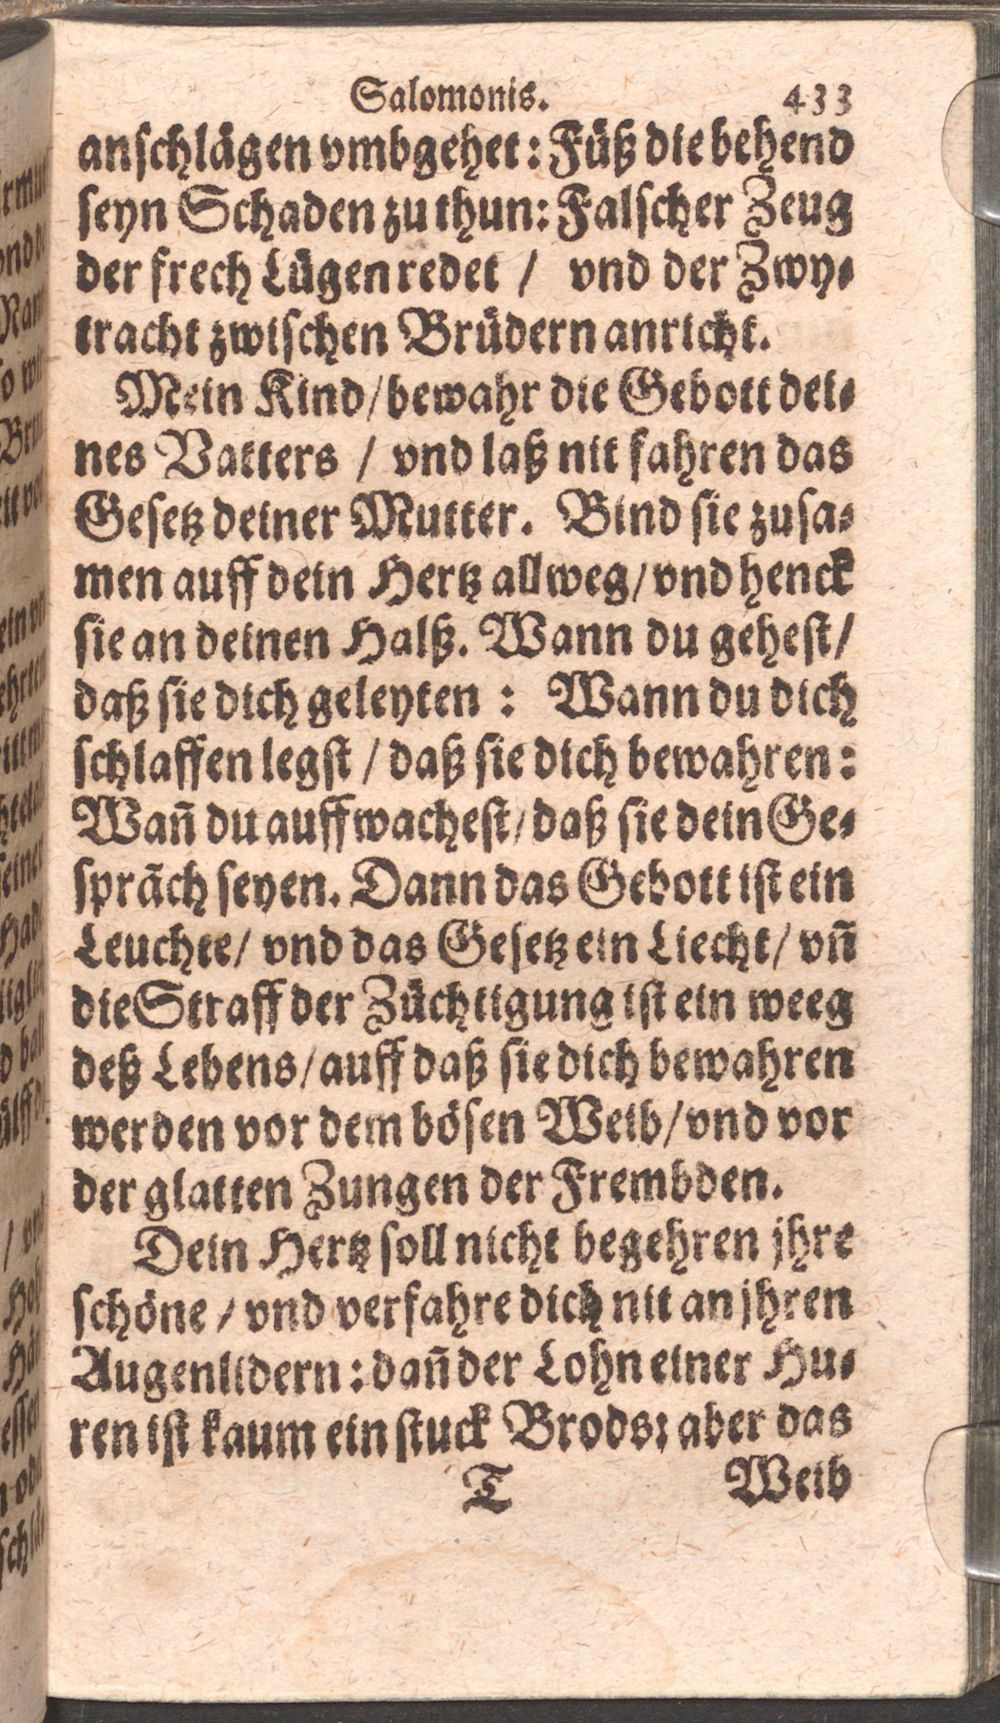 Salomonis. 433
anschlägen vmbgehet: Füß die behend
seyn Schaden zu thun: Falscher Zeug
der frech Lügen redet / vnd der Zwy-
tracht zwischen Brüdern anricht.
Mein Kind / bewahr die Gebott dei-
nes Vatters / vnd laß nit fahren das
Gesetz deiner Mutter. Bind sie zusa-
men auff dein Hertz allweg / vnd henck
sie an deinen Halß. Wann du gehest /
daß sie dich geleyten : Wann du dich
schlaffen legst / daß sie dich bewahren :
Wañ du auffwachest / daß sie dein Ge-
spräch seyen. Dann das Gebott ist ein
Leuchte / vnd das Gesetz ein Liecht / vñ
die Straff der Züchtigung ist ein weeg
deß Lebens / auff daß sie dich bewahren
werden vor dem bösen Weib / vnd vor
der glatten Zungen der Frembden.
Dein Hertz soll nicht begehren jhre
schöne / vnd verfahre dich nit an jhren
Augenlidern : dañ der Lohn einer Hu-
ren ist kaum ein stuck Brods; aber das
T Weib